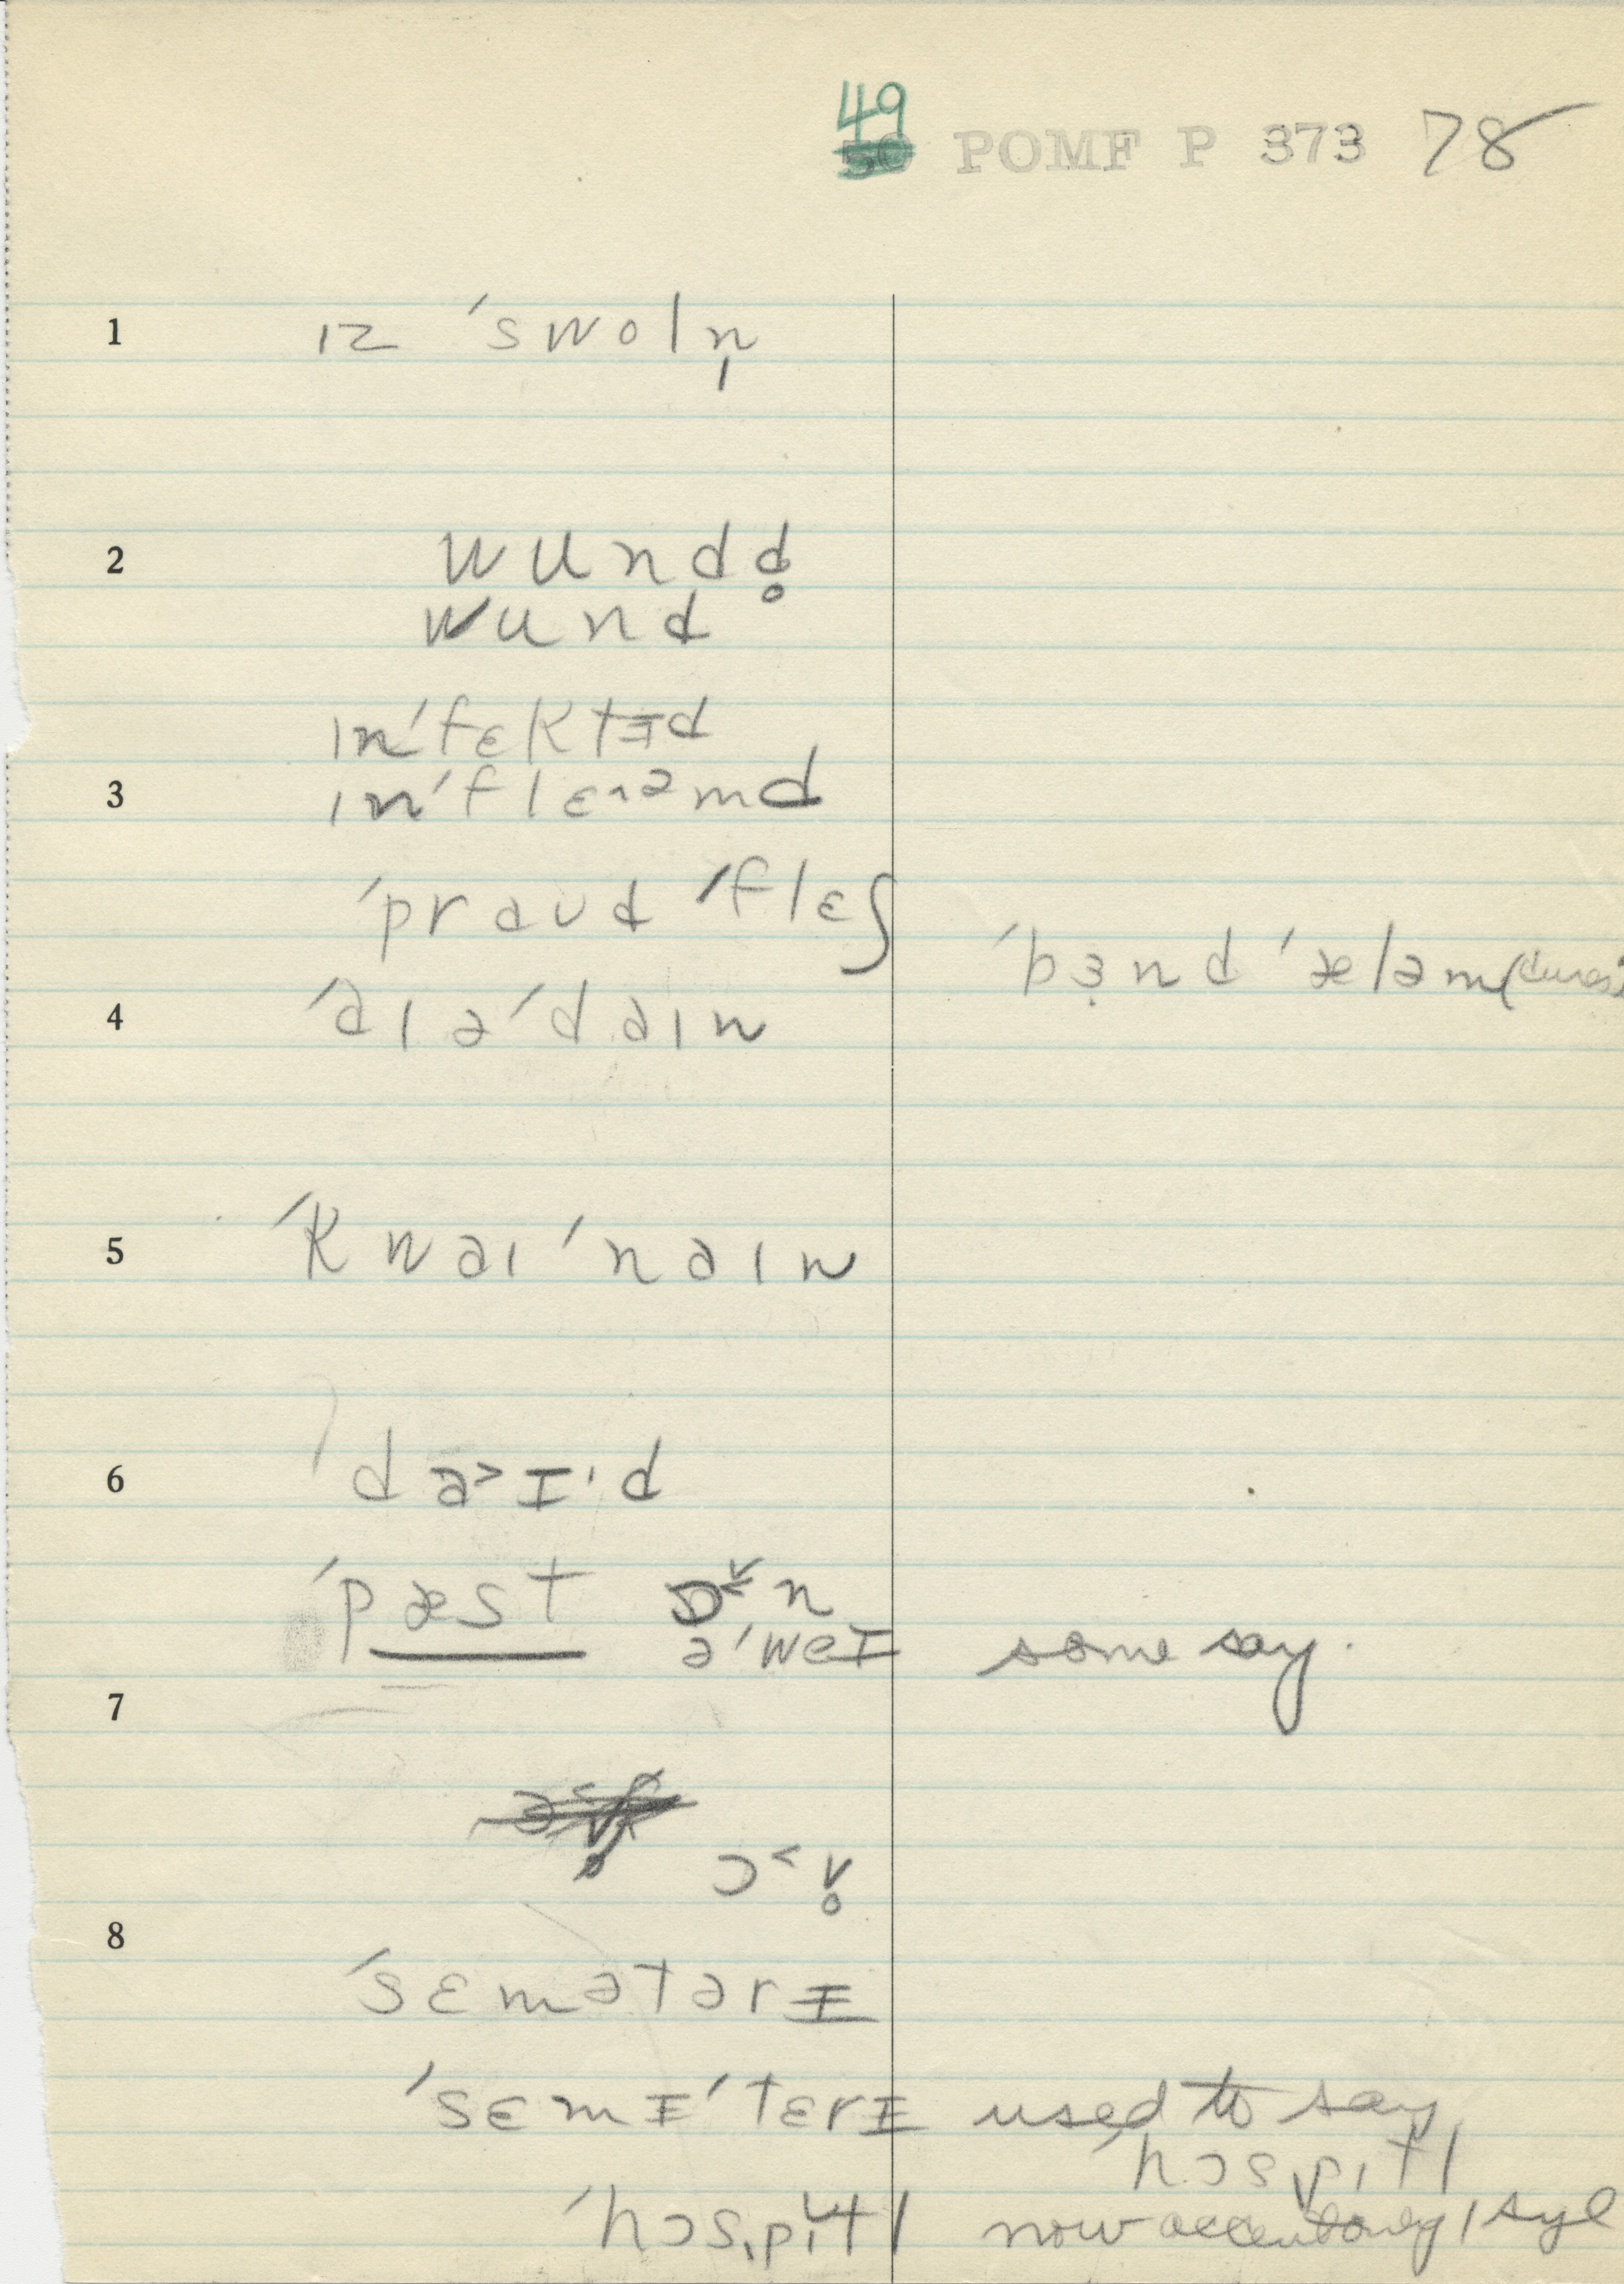 49
50 POMF P 373 78
1 ɪz ˈswoln̩
2 wundd̥
wund
ɪnˈfɛktɨd
3 ɪnˈflɛ˄ᵊmd
ˈpraʊd ˈflɛʃ
ˈbɜ̣nd ˈæləm
4 ˈaɪəˈdaɪn
5 ˈkwaɪˈnaɪn
6 ˈda˃ɪˑd
ˈpæst ɒn
əˈweɪ some say.
7
ɔ˂v̥
8
ˈsɛmətərɪ
ˈsɛmɪˈtɛrɪ used to say
ˈhɔsˌpɪtl
ˈhɔsˌpɪtl now accent on 1 syl